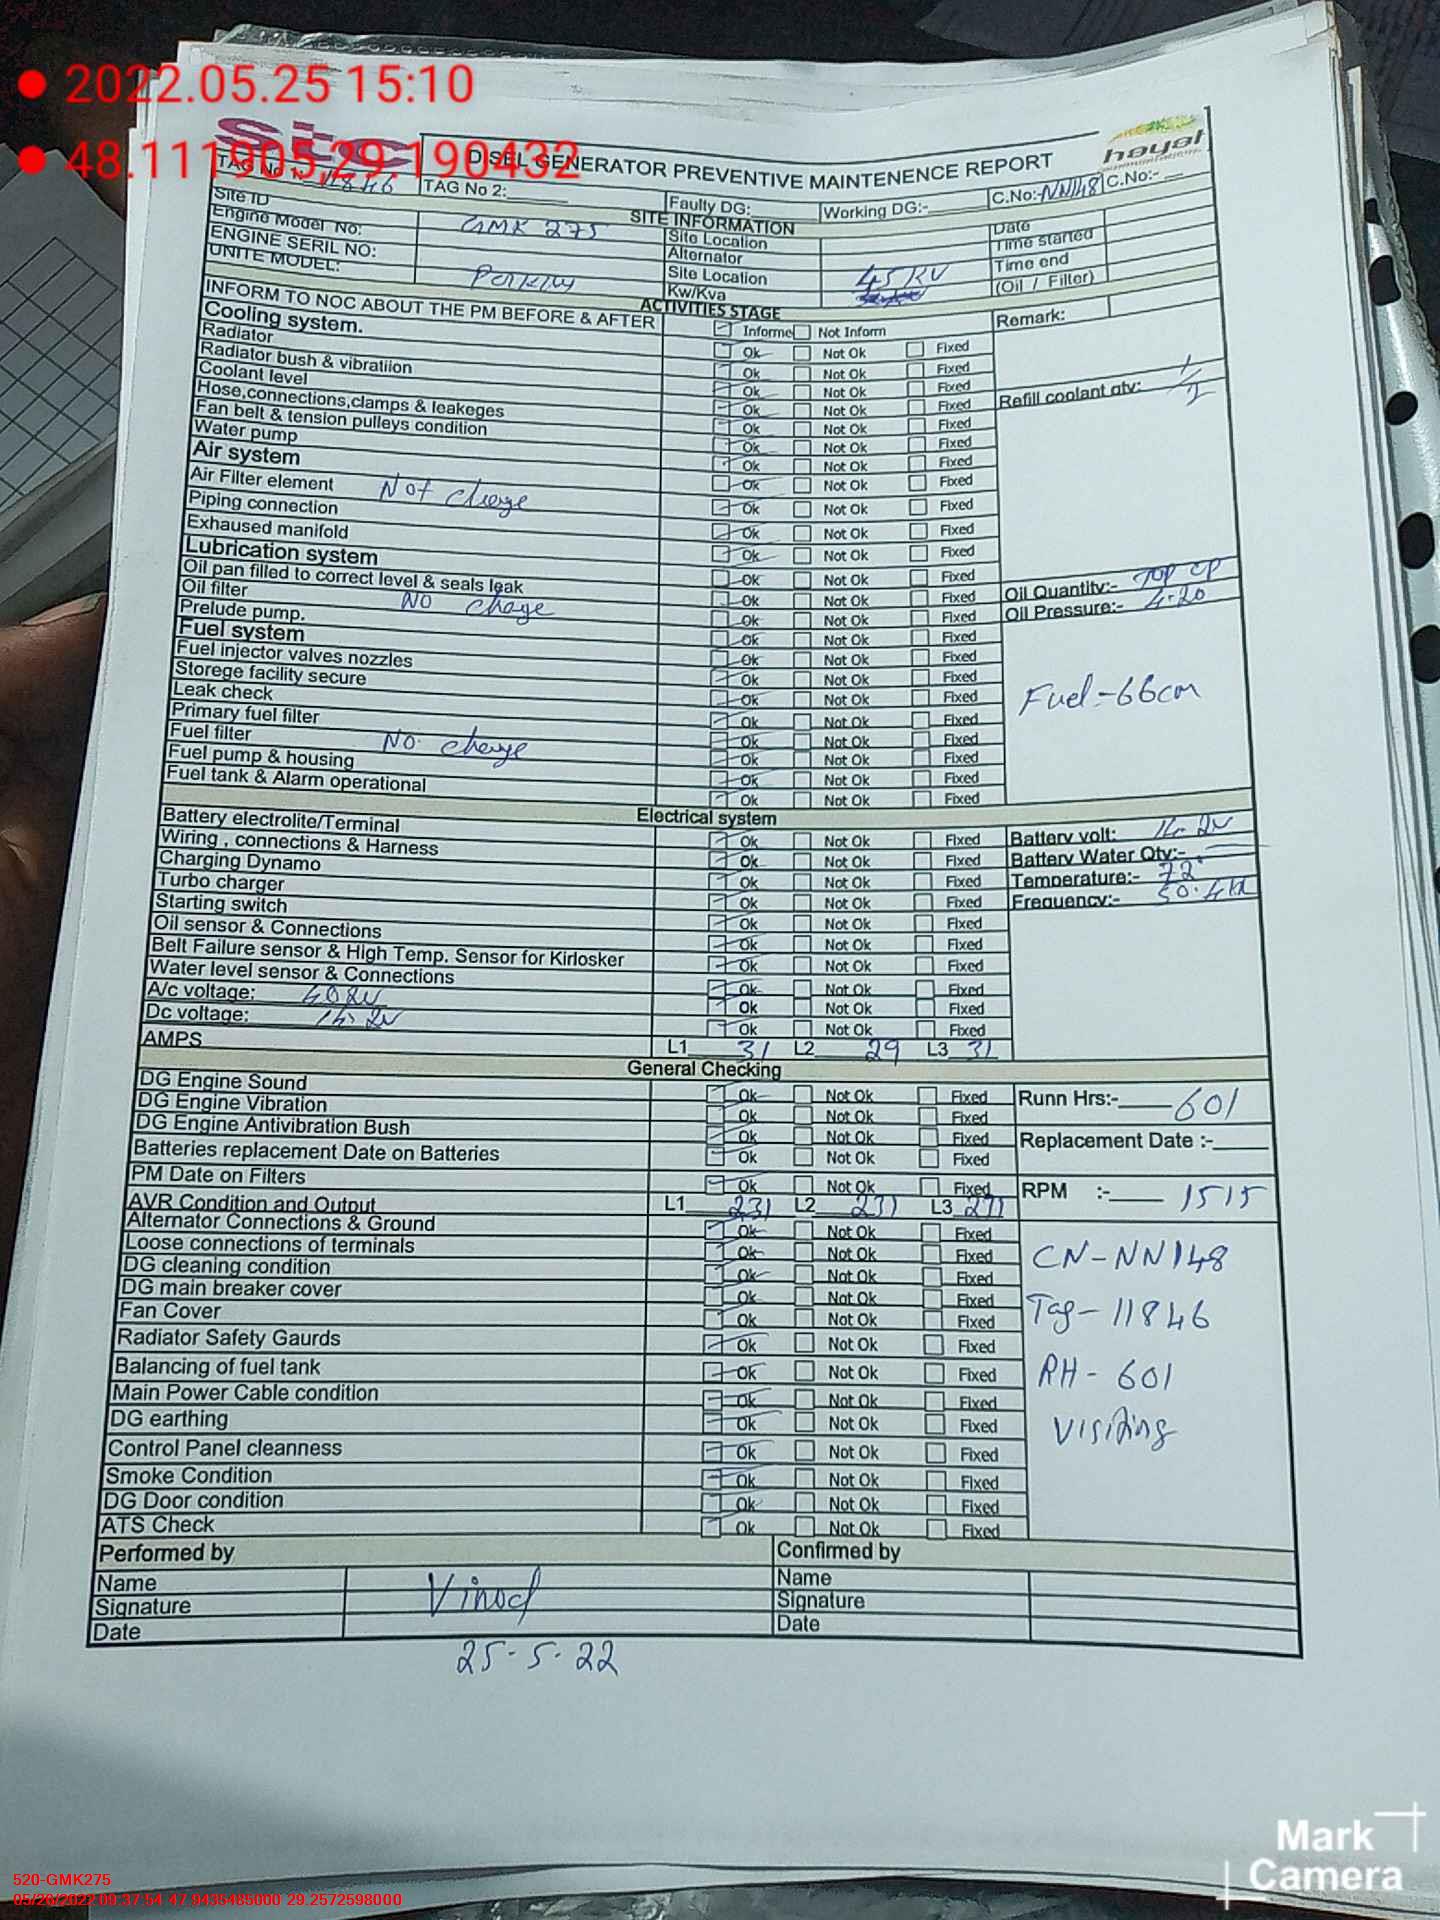 2022.05.25 15:10
48.111905,29.190432
stc
DISEL GENERATOR PREVENTIVE MAINTENENCE REPORT
hayat
TAG No 11846 TAG No 2: Faulty DG: Working DG:- C.No:-NN148 C.No:-
SITE INFORMATION
Site ID GMK 275 Site Location Date
Engine Model No: Alternator Time started
ENGINE SERIL NO: Site Location 45KV Time end
UNITE MODEL: Kw/Kva (Oil / Filter)
ACTIVITIES STAGE
INFORM TO NOC ABOUT THE PM BEFORE & AFTER Informe Not Inform Remark:
Cooling system. Ok Not Ok Fixed
Radiator Ok Not Ok Fixed
Radiator bush & vibratiion Ok Not Ok Fixed
Coolant level Ok Not Ok Fixed Refill coolant qty:
Hose,connections,clamps & leakeges Ok Not Ok Fixed
Fan belt & tension pulleys condition Ok Not Ok Fixed
Water pump Ok Not Ok Fixed
Air system Ok Not Ok Fixed
Air Filter element Not change Ok Not Ok Fixed
Piping connection Ok Not Ok Fixed
Exhaused manifold Ok Not Ok Fixed
Lubrication system Ok Not Ok Fixed
Oil pan filled to correct level & seals leak Ok Not Ok Fixed Oil Quantity:- Top up
Oil filter NO change Ok Not Ok Fixed Oil Pressure:- 4.20
Prelude pump. Ok Not Ok Fixed
Fuel system Ok Not Ok Fixed
Fuel injector valves nozzles Ok Not Ok Fixed
Storege facility secure Ok Not Ok Fixed Fuel-66cm
Leak check Ok Not Ok Fixed
Primary fuel filter Ok Not Ok Fixed
Fuel filter NO. change Ok Not Ok Fixed
Fuel pump & housing Ok Not Ok Fixed
Fuel tank & Alarm operational Ok Not Ok Fixed
Electrical system
Battery electrolite/Terminal Ok Not Ok Fixed Battery volt: 14.2v
Wiring , connections & Harness Ok Not Ok Fixed Battery Water Qty:-
Charging Dynamo Ok Not Ok Fixed Temperature:- 72.
Turbo charger Ok Not Ok Fixed Frequency:- 50.4Hz
Starting switch Ok Not Ok Fixed
Oil sensor & Connections Ok Not Ok Fixed
Belt Failure sensor & High Temp. Sensor for Kirlosker Ok Not Ok Fixed
Water level sensor & Connections Ok Not Ok Fixed
A/c voltage: 402v Ok Not Ok Fixed
Dc voltage: 14.2v Ok Not Ok Fixed
AMPS L1 31 L2 29 L3 31
General Checking
DG Engine Sound Ok Not Ok Fixed Runn Hrs:- 601
DG Engine Vibration Ok Not Ok Fixed
DG Engine Antivibration Bush Ok Not Ok Fixed Replacement Date :-
Batteries replacement Date on Batteries Ok Not Ok Fixed
PM Date on Filters Ok Not Ok Fixed RPM :- 1515
AVR Condition and Output L1 231 L2 231 L3 231
Alternator Connections & Ground Ok Not Ok Fixed
Loose connections of terminals Ok Not Ok Fixed CN-NN148
DG cleaning condition Ok Not Ok Fixed
DG main breaker cover Ok Not Ok Fixed
Fan Cover Ok Not Ok Fixed Tag-11846
Radiator Safety Gaurds Ok Not Ok Fixed
Balancing of fuel tank Ok Not Ok Fixed RH-601
Main Power Cable condition Ok Not Ok Fixed
DG earthing Ok Not Ok Fixed Visiting
Control Panel cleanness Ok Not Ok Fixed
Smoke Condition Ok Not Ok Fixed
DG Door condition Ok Not Ok Fixed
ATS Check Ok Not Ok Fixed
Performed by Confirmed by
Name Vinod Name
Signature Signature
Date Date
25.5.22
Mark
Camera
520-GMK275
05/26/2022 00:37:54 47.9435485000 29.2572598000